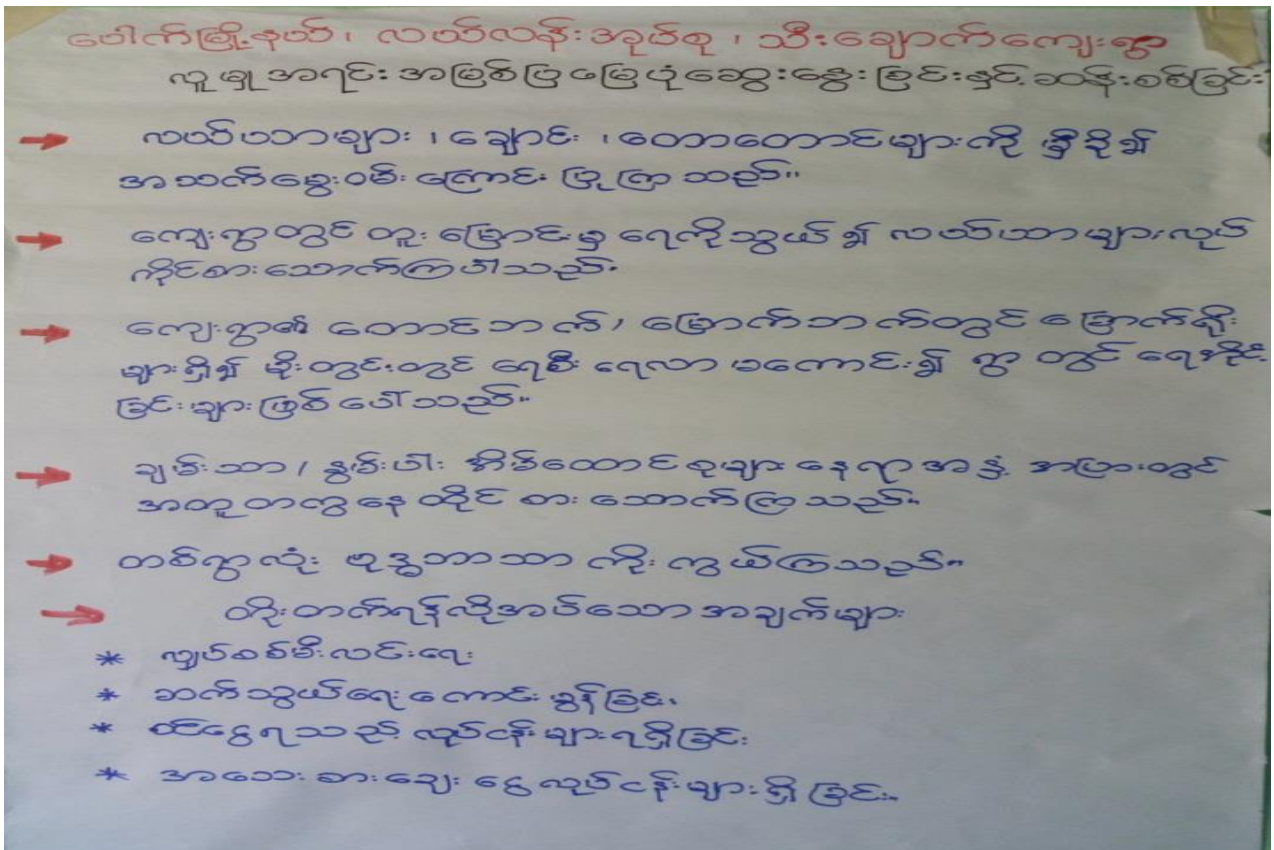 ပေါက်မြို့နယ်၊ လယ်လန်းအုပ်စု ၊ သီးချောက်ကျေးရွာ
လူမှု အရင်း အမြစ်ပြ မြေပုံဆွေးနွေးခြင်းနှင့် ဆန်းစစ်ခြင်း
→ လယ်ယာများ ၊ ချောင်း ၊ တောတောင်များကို မှီခို၍
အသက်မွေးဝမ်း ကြောင်း ပြုကြ သည်။
→ ကျေးရွာတွင် တူး မြောင်းမှ ရေကိုသွယ်၍ လယ်ယာများလုပ်
ကိုင်စားသောက်ကြပါသည်။
→ ကျေးရွာ၏ တောင်ဘက်၊ မြောက်ဘက်တွင် မြောက်ရိုး
များရှိ၍ မိုးတွင်းတွင် ရေစီး ရေလာ မကောင်း၍ ရွာ တွင် ရေအိုင်
ခြင်းများဖြစ်ပေါ်သည်။
→ ချမ်းသာ ၊ နွမ်းပါး အိမ်ထောင်စုများ နေရာအနှံ့ အပြားတွင်
အတူတကွနေထိုင် စား သောက်ကြသည်။
→ တစ်ရွာလုံး ဗုဒ္ဓဘာသာ ကိုးကွယ်ကြသည်။
→ တိုးတက်ရန်လိုအပ်သောအချက်များ
* လျှပ်စစ်မီးလင်းရေး
* ဆက်သွယ်ရေး ကောင်းမွန်ခြင်း
* ဝင်ငွေရသည့် လုပ်ငန်းများရရှိခြင်း
* အသေးစားချေးငွေလုပ်ငန်းများရှိခြင်း။